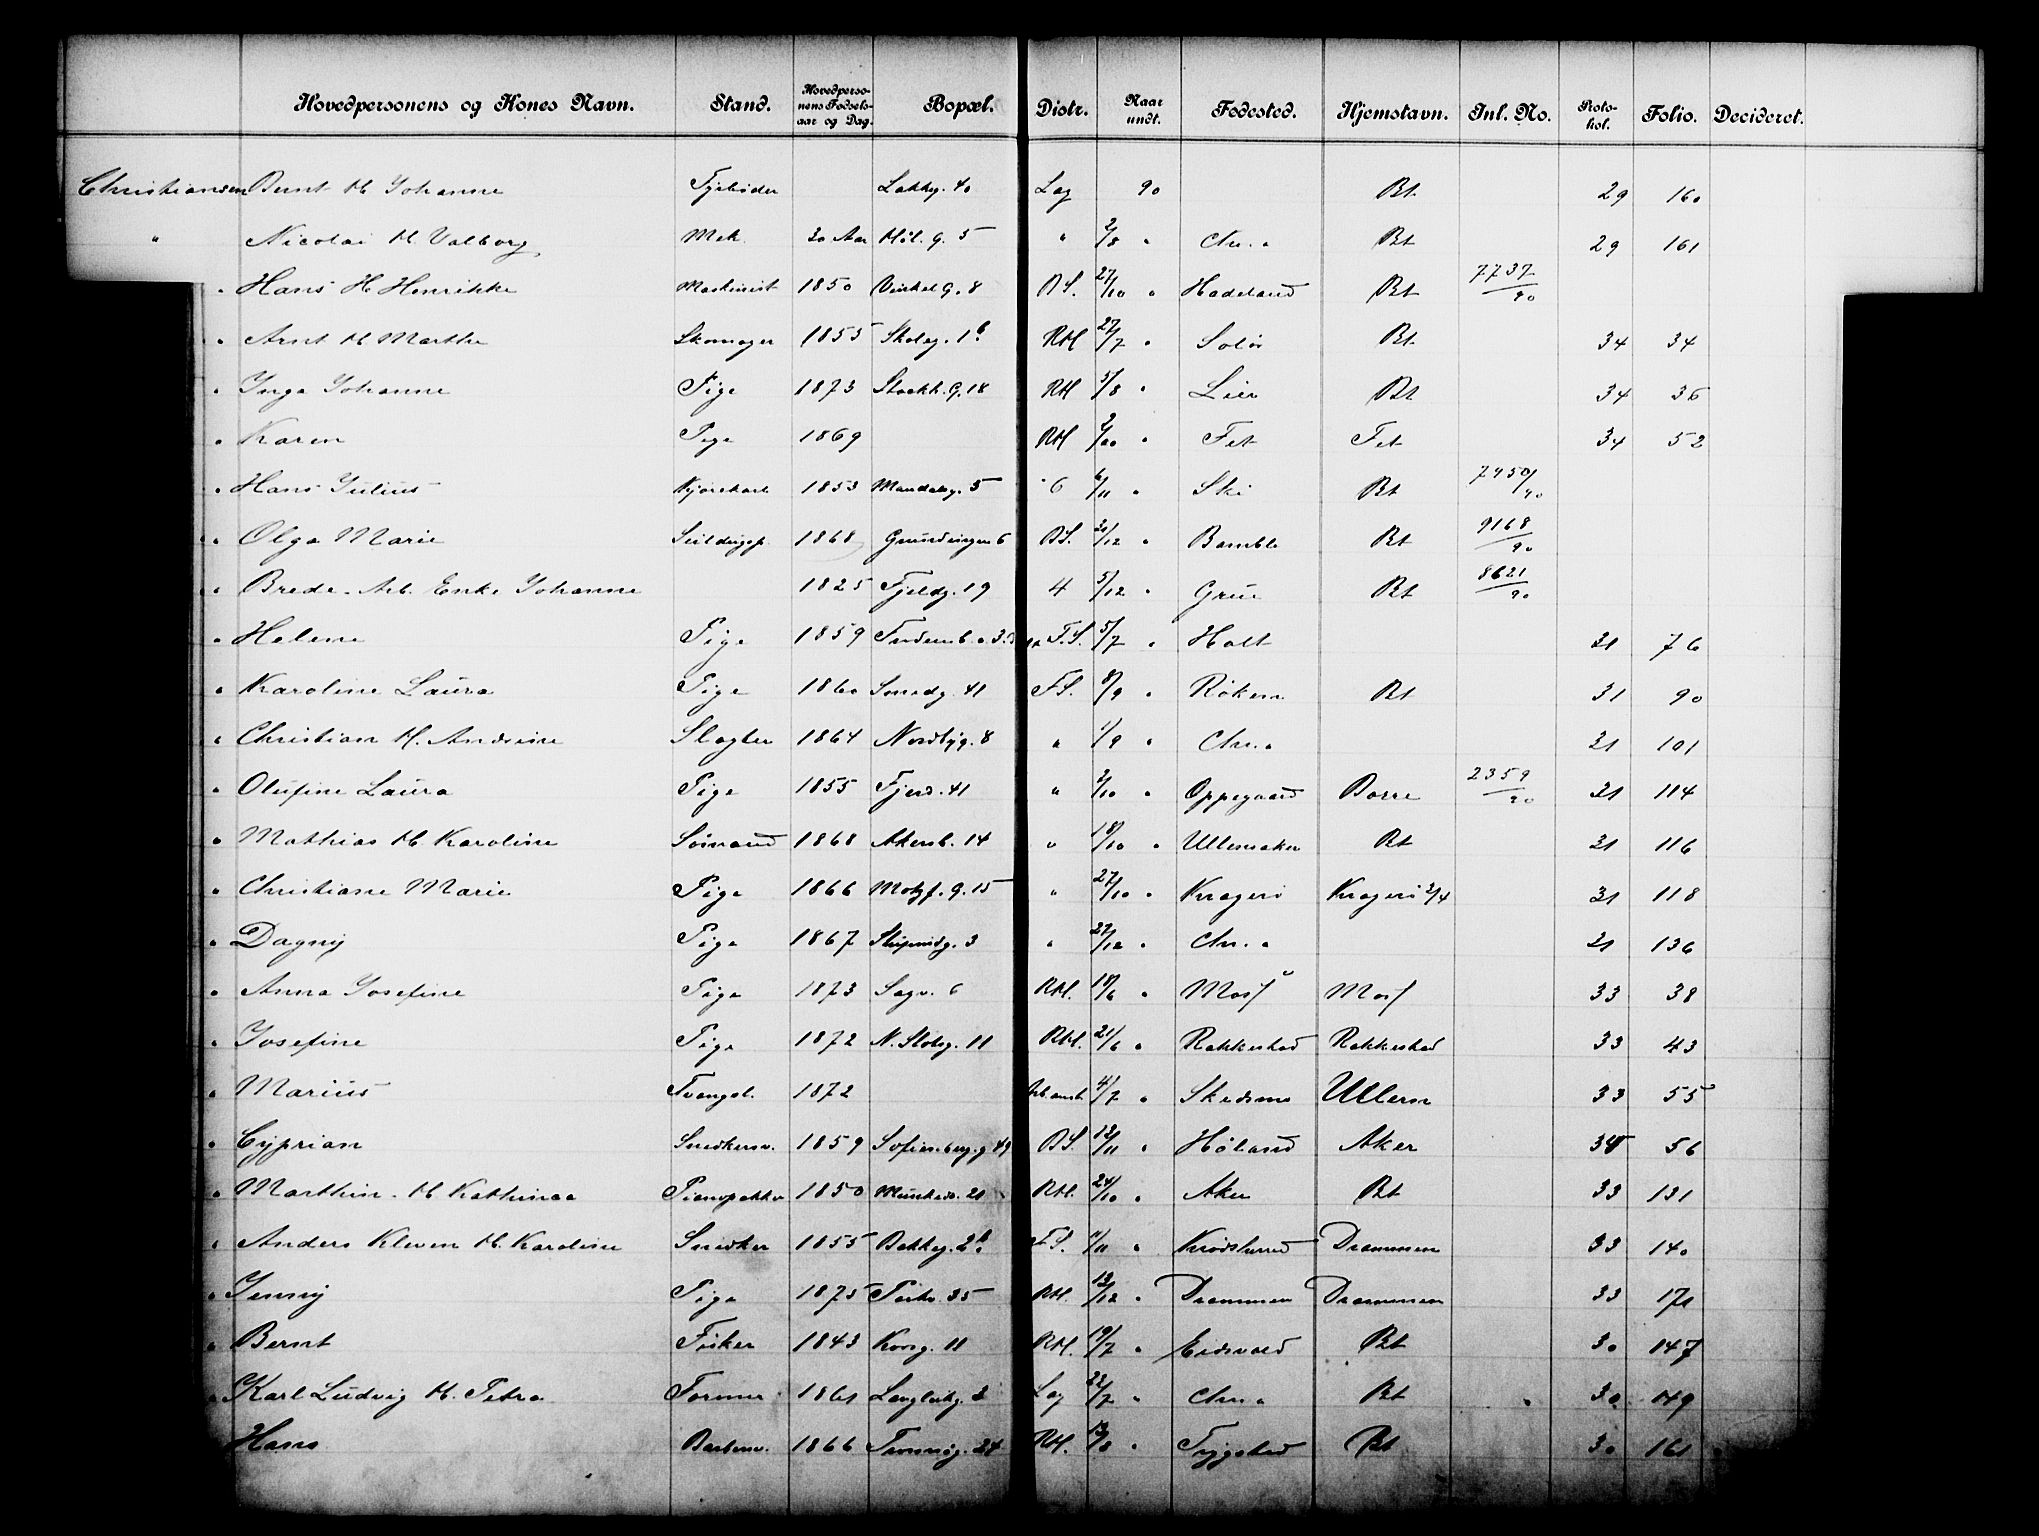 Hovedpersonens og Kones Navn. Stand. Hovedpersonens Fødselsaar og Dag. Bopæl. Distr. Naar undt. Fødested. Hjemstavn. Inl. No. Protokol. Folio. Decideret.
Christiansen Bernt H Johanne Fyrbøder Lakkg. 40 Lag 90 Bt 29 160
" Nicolai H Valborg Mek. 30 Aar Møl. G. 5 " 2/8 " Chr.a Bt 29 161
" Hans H Henrikke Maskinist 1850 Vinkel G. 8 BS. 27/10 " Hadeland Bt 7737/90
" Arnt H Marthe Skomager 1855 Skoleg. 1b RH 27/7 " Solør Bt 34 34
" Inga Johanne Pige 1873 Stockh. G. 18 RH 5/8 " Lier Bt 34 36
" Karen Pige 1869 RH " Fet Fet 34 52
" Hans Julius Kjørekarl 1853 Mandalsg. 5 6 6/11 " Ski Bt
" Olga Marie 1868 6 BS. " Bamble Bt 9168/90
" Brede Arb. Enke Johanne 1825 Fjeldg. 19 4 5/12 " Grue Bt 8621/90
" Helene Pige 1859 F.S. 5/7 " Holt 31 76
" Karoline Laura Pige 1860 Smedg. 41 FS. 8/9 " Røken Bt 31 90
" Christian H. Andrine Slagter 1864 Nordbyg. 8 " 1/9 " Chr.a 31 101
" Olufine Laura Pige 1855 Fjerd. 41 " 2/10 " Oppegaard Borre 2359/90 31 114
" Mathias H. Karoline Sømand 1868 Akersb. 14 " 18/10 " Ullensaker Bt 31 116
" Christiane Marie Pige 1866 Motzf. G. 15 " 27/10 " Kragerø Kragerø 3/4 31 118
" Dagny Pige 1867 Stupinsg. 3 " 27/12 " Chr.a 31 136
" Anna Josefine Pige 1873 Sagv. 6 RH. 18/6 " Moss Moss 33 38
" Josefine Pige 1872 N. Slotsg. 11 RH. 21/6 " Rakkestad Rakkestad 33 43
" Marius Tvangsl. 1872 4/7 " Skedsmo Ullern 33 55
" Cyprian Snedkersv. 1859 Sofienberg. g 49 BS. 12/11 " Høland Aker 56
" Marthin H Kathinca 1850 RH. 24/10 " Aker Bt 33 131
" Anders Kleven H. Karoline Snedker 1855 Bakkeg. 2b FS. " Krødsherred Drammen 33 140
" Jenny Pige 1875 Parkv. 35 RH. 13/12 " Drammen Drammen 33 171
" Bernt Fisker 1843 Korsg. 11 RH. 19/7 " Eidsvold Bt 30 147
" Karl Ludvig H. Petra Former 1861 Langleikg. 3 Lag 22/7 " Chr.a Bt 30 149
Hans 1866 RH. " Trygstad Bt 30 161